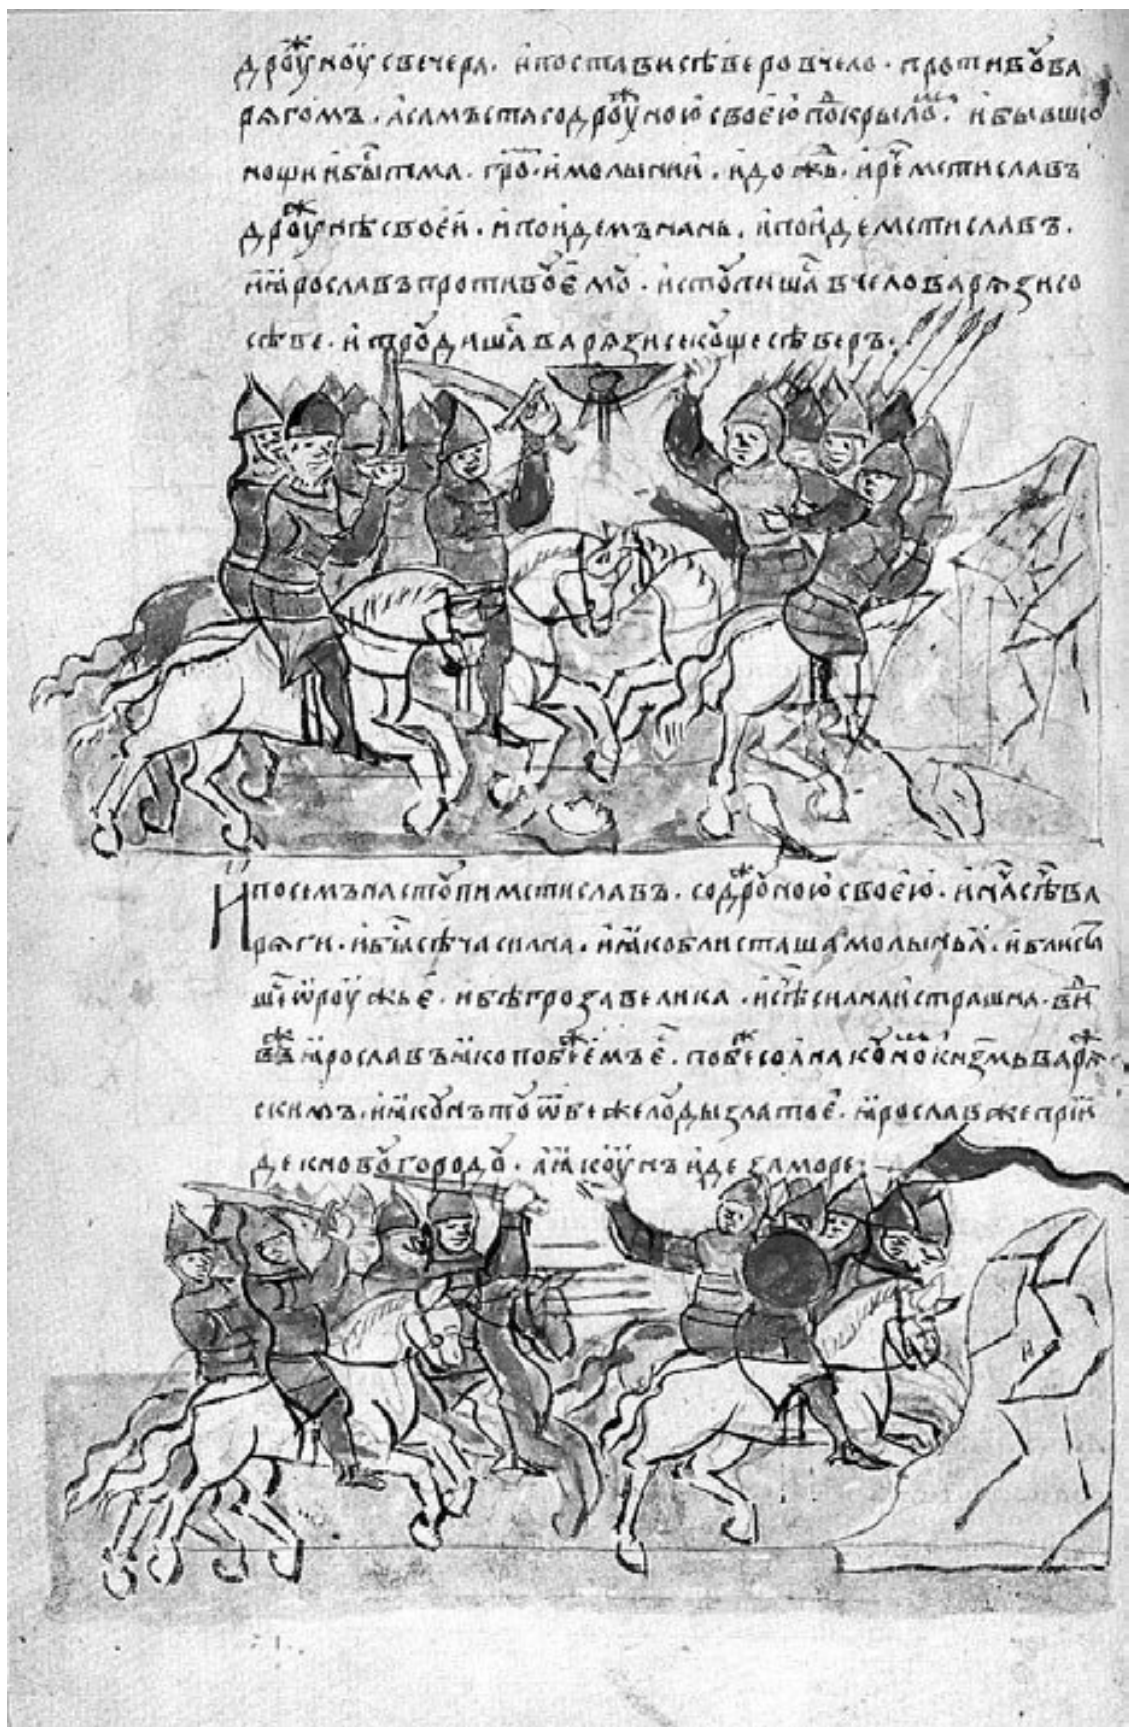 дроуⷤноу свечера · ипостависѣверовчело · противоува
рягомъ · асамъстасодроуⷤноюсвоеюпоⷣкрылом · ибывшю
нощиибы҇тма · гроⷨ · имолынии · идожⷣь · иреⷱмстиславъ
дроуⷤнѣсвоеи · ипоидемънань · ипоидемстиславъ ·
иꙗрославъпротивоуемоу · иступишаⷭвчеловарязисо
сѣвеⷬ · итроудишаⷭварязисекоущесѣверъ ·
Ипосемънаступимстиславъ · содроуⷤноюсвоею · инаⷱсѣⷱва
ряги · ибыⷭсѣчасилна · иꙗкоблисташамолыньꙗ · иблиста
шеⷭѡроужье · ибѣгрозавелика · исѣⷱсилнаистрашна · виⷣ
вⷤъꙗрославъꙗкопобеⷤемъеⷭ · побеⷤсоꙗкоуномъкнѧземьварѧⷤ
скимъ · иꙗкоунътоуѿбежелоудызлатое · ꙗрославжеприи
декновоугородоу · аꙗкоунъидезаморе